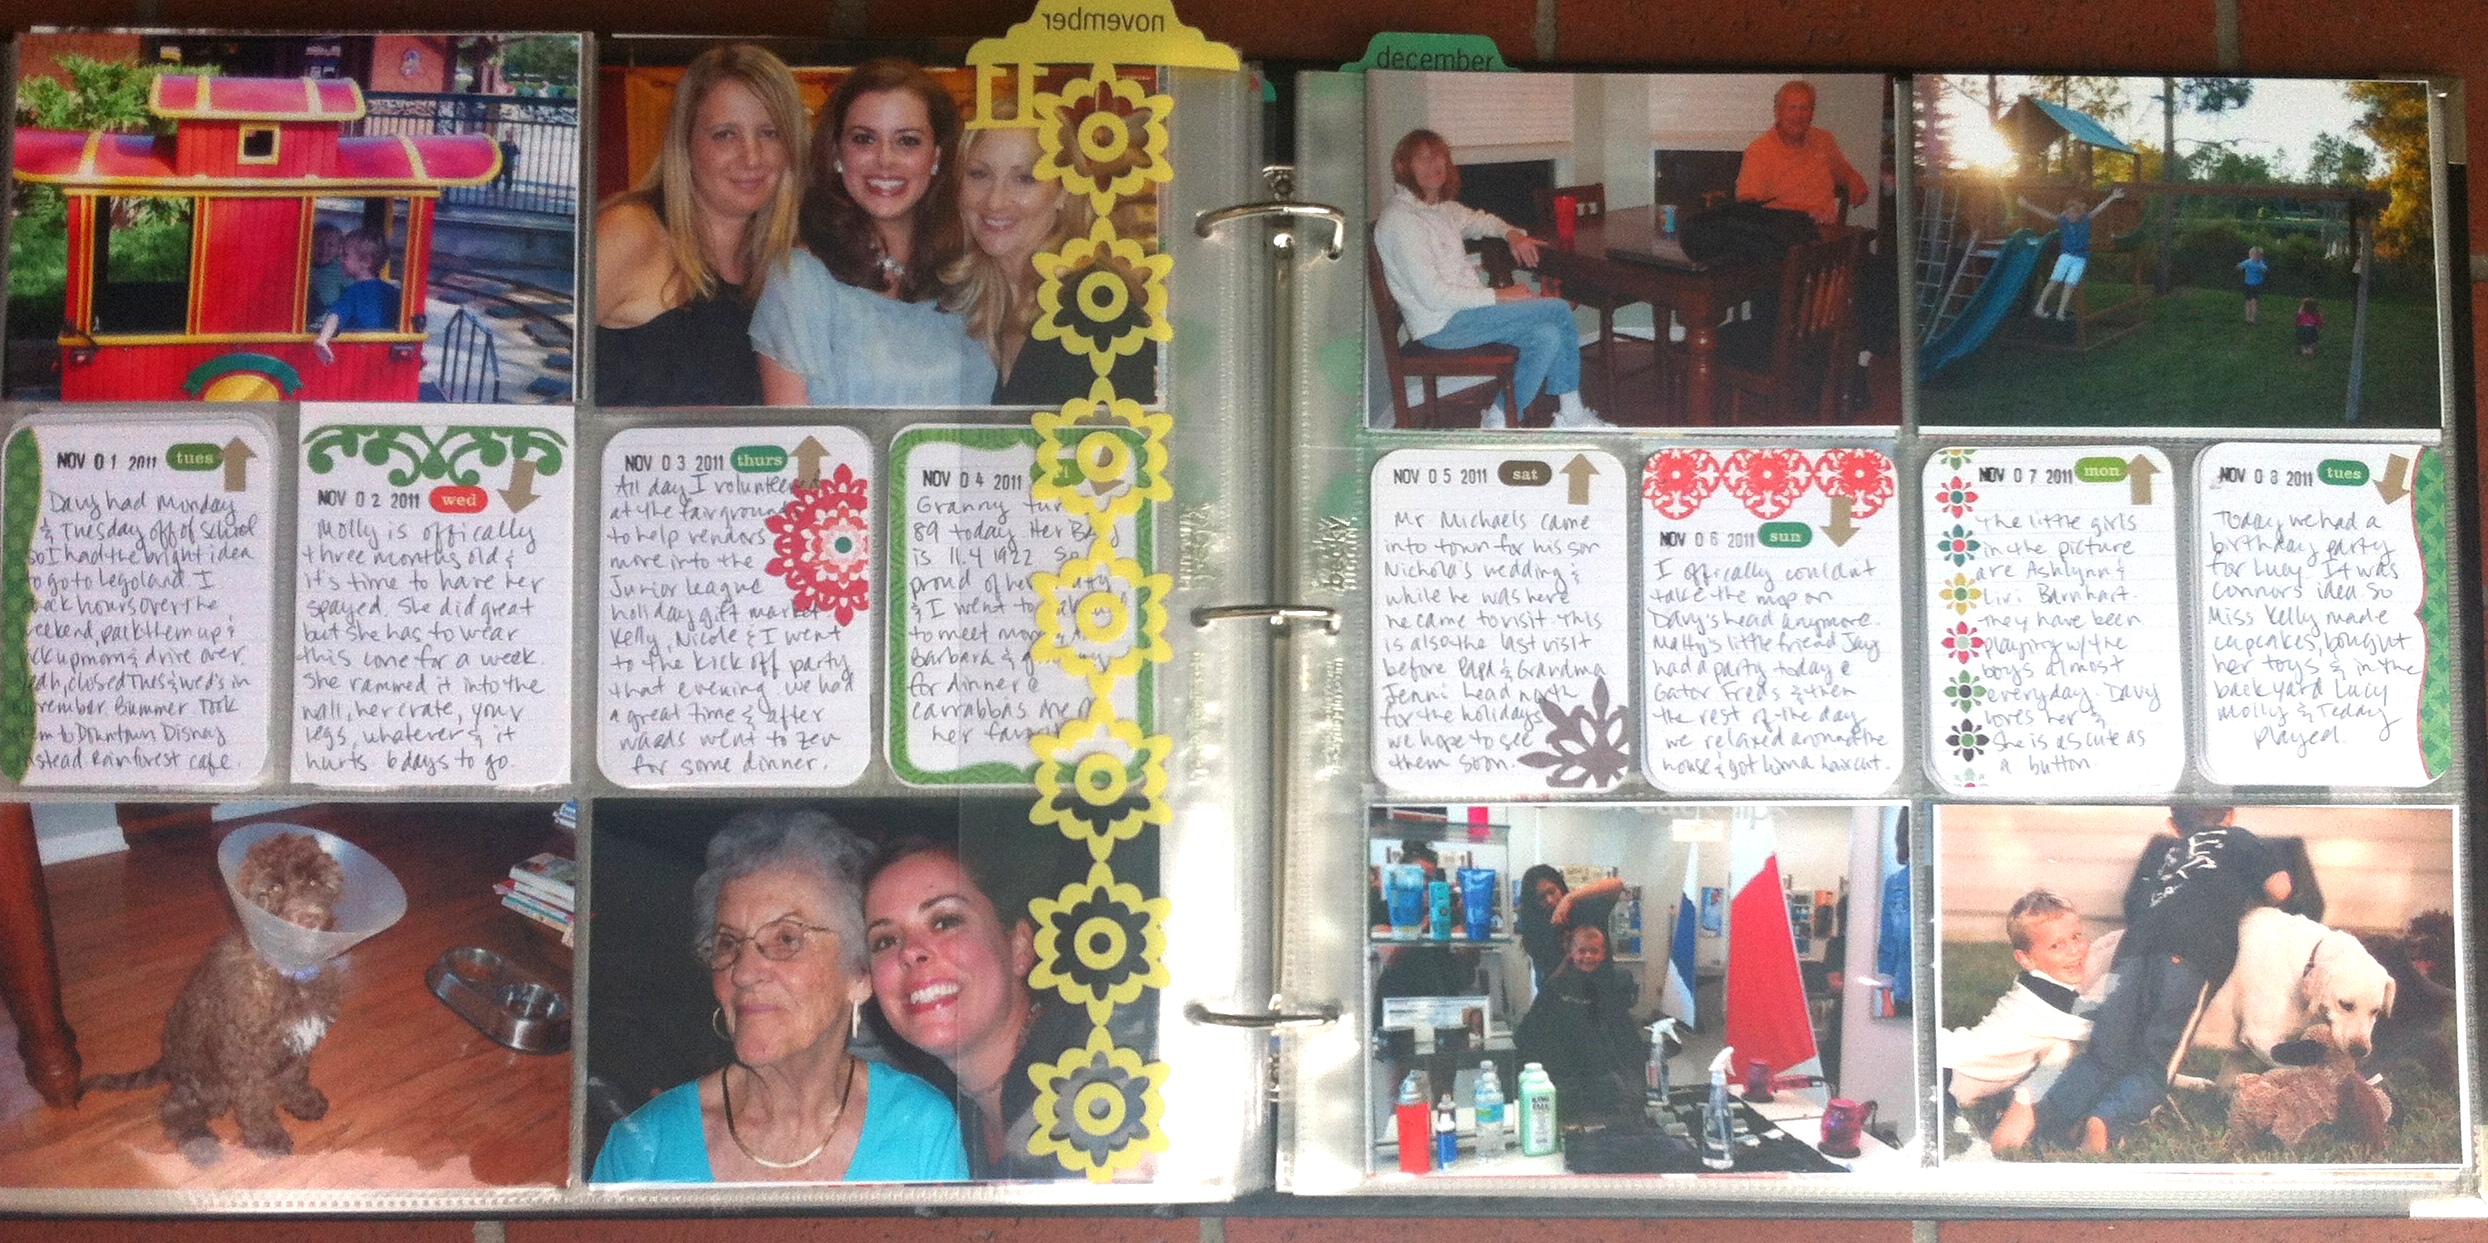 november
11
december
NOV 01 2011 tues
Davy had Monday
& Tuesday off of school
so I had the bright idea
to go to Legoland I
hours over the
weekend, pack them up &
pick up mom & drive over.
closed Tues & wed's in
November. Bummer. Took
them to Downtown Disney
instead. Rainforest cafe.
NOV 02 2011 wed
Molly is offically
three months old &
it's time to have her
spayed. She did great
but she has to wear
this cone for a week.
She rammed it into the
wall, her crate, your
legs, whatever & it
hurts 6 days to go.
NOV 03 2011 thurs
All day I volunteered
at the fairground
to help vendors
move into the
Junior League
holiday gift market.
Kelly, Nicole & I went
to the kick off party
that evening. We had
a great time & after
wards went to Zen
for some dinner.
NOV 04 2011
Granny tur
89 today. Her
is 11.4 1922. So
proud of her.
& I went to
to meet mom &
Barbara &
for dinner @
carrabbas
her favor
NOV 05 2011 sat
Mr Michaels came
into town for his son
Nichola's wedding &
while he was here
he came to visit. This
is also the last visit
before Papa & Grandma
Jenni head north
for the holidays
we hope to see
them soon.
NOV 06 2011 sun
I offically couldn't
take the mop on
Davy's head anymore.
Matty's little friend Jay
had a party today @
Gator Freds & then
the rest of the day
we relaxed around the
house & got him a haircut.
NOV 07 2011 mon
The little girls
in the picture
are Ashlynn &
Livi Barnhart.
They have been
playing w/ the
boys almost
everyday. Davy
loves her &
she is as cute as
a button.
NOV 08 2011 tues
Today we had a
birthday party
for Lucy. It was
Connors idea. So
Miss Kelly made
cupcakes, bought
her toys & in the
backyard Lucy
Molly & Teddy
played.
becky